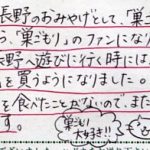 長野のおみやげとして、「巣ご
ら、「巣ごもり」のファンになり
長野へ遊びに行く時には
を買うようになりました。
を食べたことがないので、また
す。
巣ごもり
大好き!!